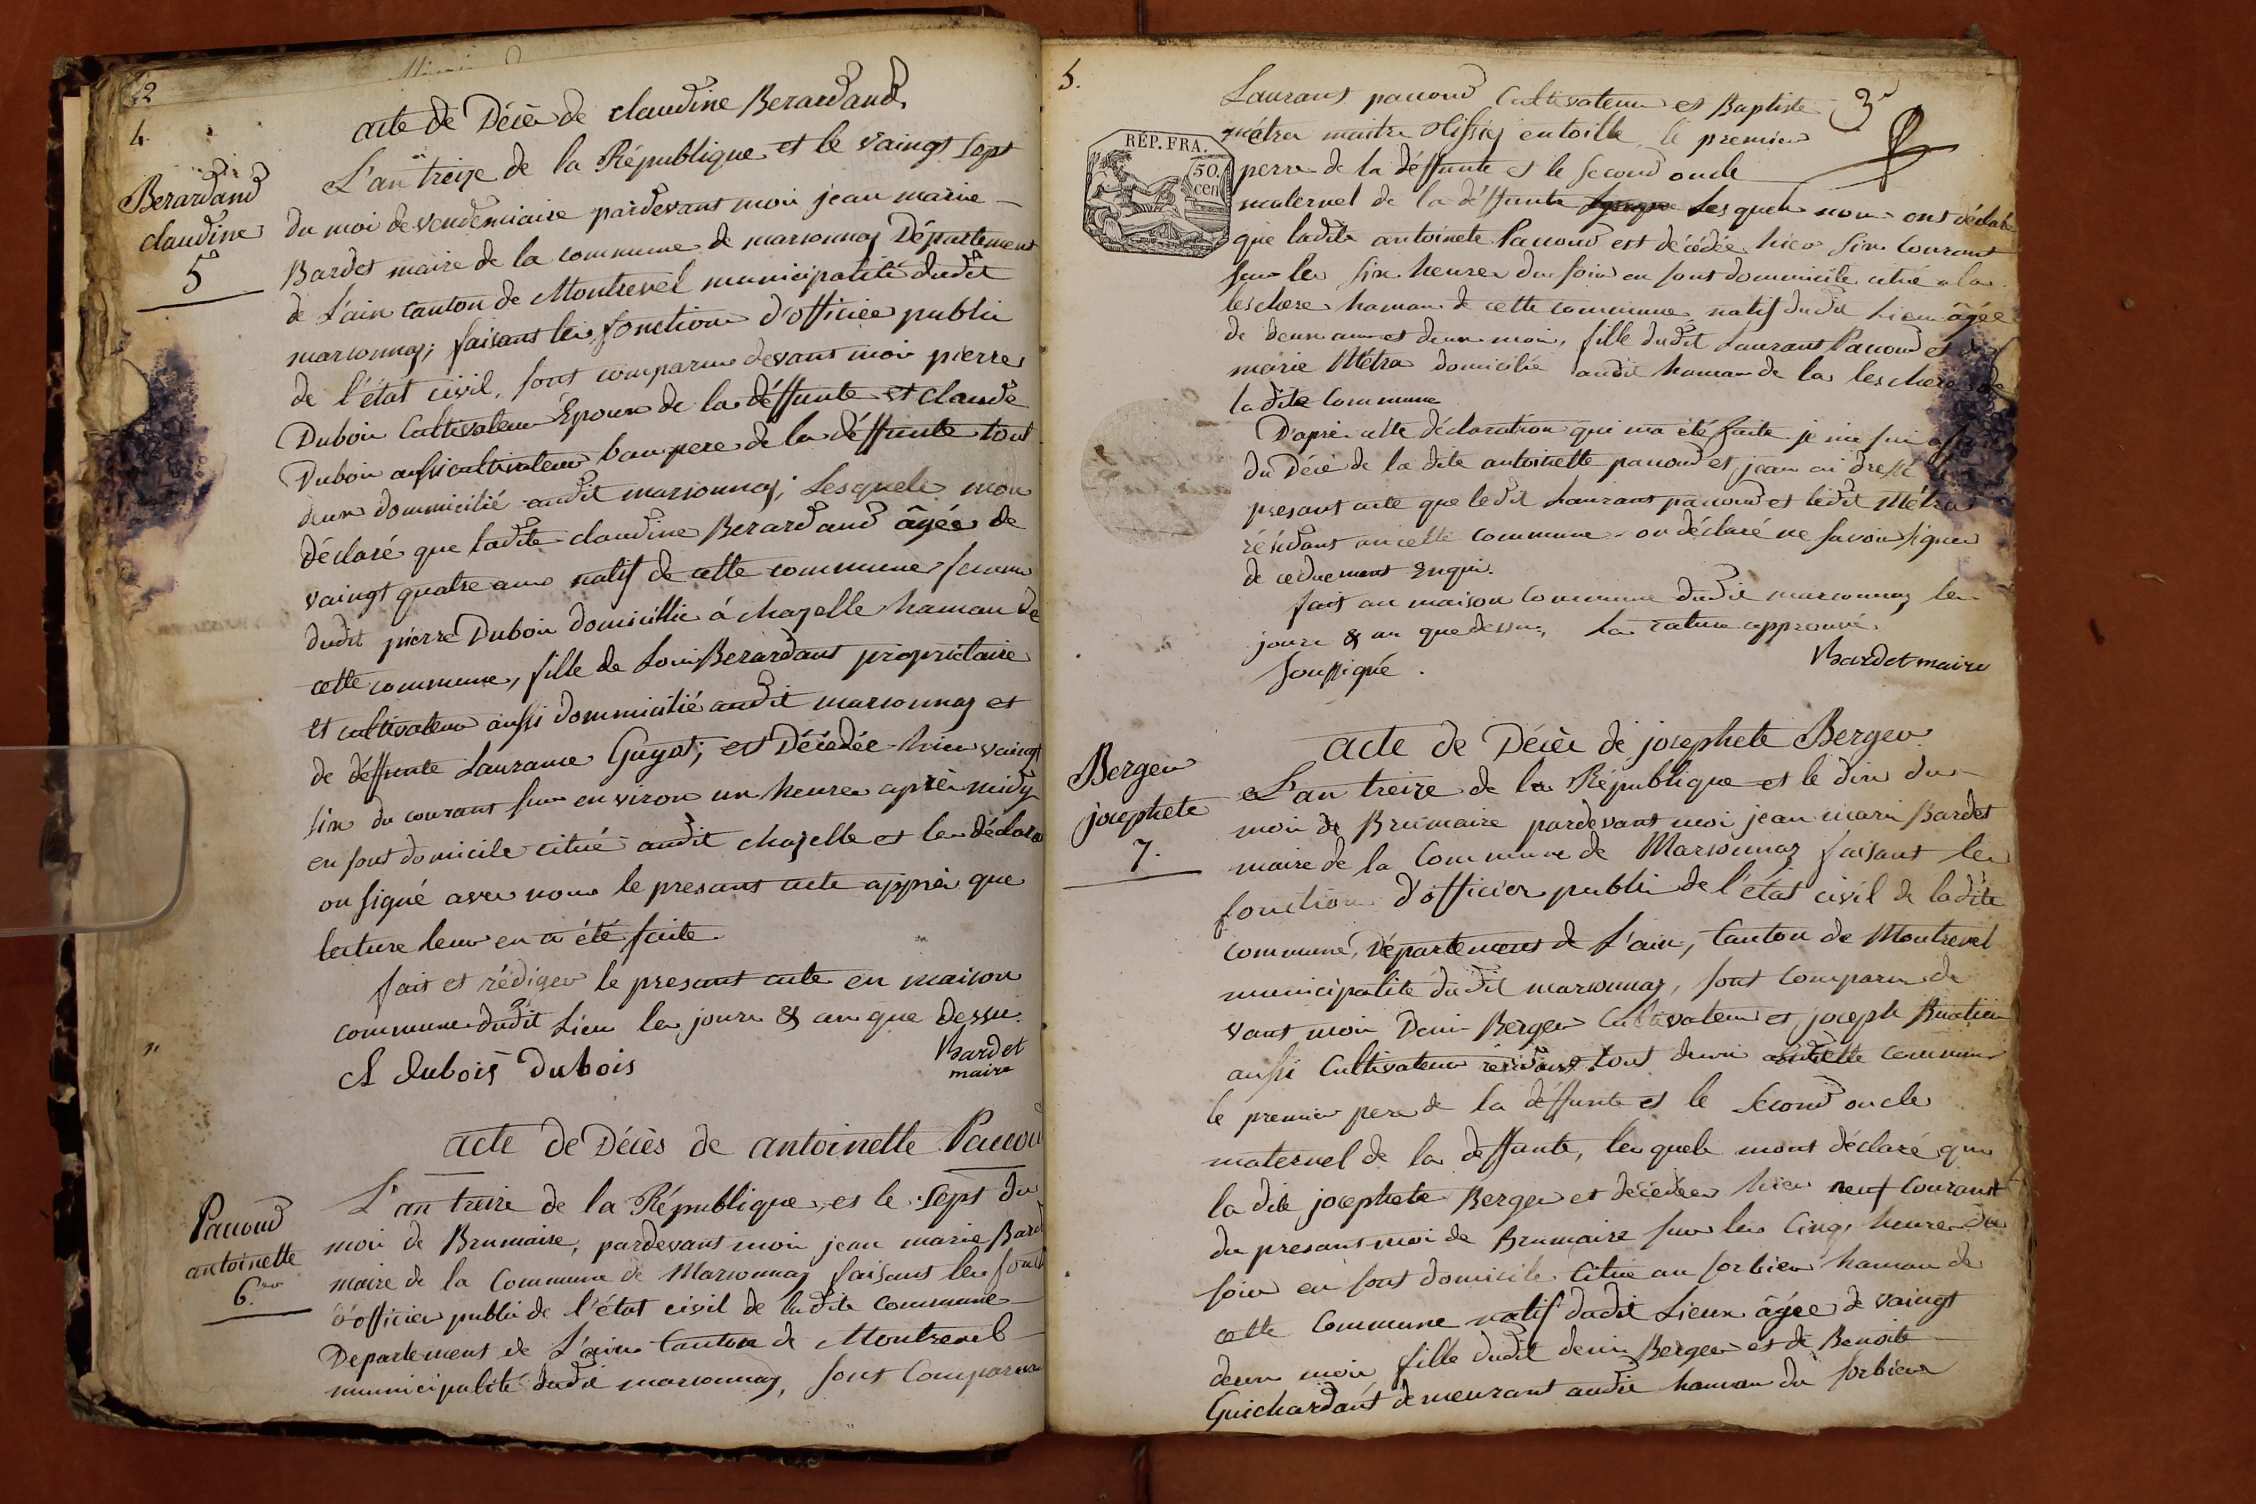 42
4.
acte de Décè de claudine Berardand.
Berardand
claudine
5
L'an treize de la République et le vaingt sept
du moi de vendemiaire pardevant moi jean marie
Bardet maire de la commune de marsonnaz Département
de L'ain canton de Montrevel municipalité dudit
marsonnaz; faisant les fonction d'officier public
de l'état civil, sont comparu devant moi pierre
Duboi Cultivateur Epoux de la déffunte et claude
Duboi aussi cultivateur baupere de la déffunte tout
deux dommicilié audit marsonnaz; Lesquels mon
déclaré que ladite claudine Berardand âgée de
vaingt quatre ans natif de cette commune femme
dudit pierre Duboi domicillié à chazelle hamau de
cette commune, fille de Loui Berardant propriétaire
et cultivateur aussi dommicilié audit marsonnaz et
de déffunte Laurance Guyot; est Décédée hier vaingt
six du courant sur environ un heures après midy
en sont domicile citué audit chazelle et les déclara
on signé avec nous le presant acte apprè que
lecture leur en a été faite.
fait et rédiger le presant acte en maison
commune dudit Lieu les jours & an que Dessu.
Cl dubois Dubois
Bardet
maire
acte de Décès de antoinette Pacou
Pacoud
antoinette
6.
L'an treize de la République, et le sept du
moi de Brumaire, pardevant moi jean marie Bard
maire de la Commune de Marsonnaz faisant les fonct
d'officier public de l'état civil de ladite commune
Departement de L'ain Canton de Montrevel
municipalité dudit marsonnaz, sont Comparu
5.
3
RÉP. FRA.
50.
cen
Laurant pacoud Cultivateur et Baptiste
métra maitre tissier en toille le premier
perre de la déffunte et le second oncle
maternel de la déffunte Lesquels nous ont déclaré
que ladite antoinete Pacoud est décédée hier six Courant
sur les six heures du soir en sont dommicile citué a la
leschere hamau de cette commune natif dudit Lieu âgée
de deux ans et deux moi, fille dudit Laurant Pacoud et
marie Métra domicilié audit hamau de la leschere de
ladite Commune
D'aprè cette déclaration qui ma été faite je me sui
du Décè de la dite antoinette pacoud et jean ai dressé
presant acte que ledit Laurant pacoud et ledit Métra
résidant en cette commune on déclaré ne savoir signer
de ceduement Enqui.
fait au maison Commune dudit marsonnaz les
jours & an que dessu, La rature approuvé.
soussigné.
Bardet maire
acte de Décè de josephete Berger
Berger
josephete
7.
L'an treize de la République et le dix du
moi de Brumaire pardevant moi jean marie Bardet
maire de la Commune de Marsonnaz faisant les
fonction d'officier public de l'état civil de ladite
commune, Département de L'ain, Canton de Montrevel
municipalité dudit marsonnaz, sont Comparu de
vant moi Deni Berger Cultivateur et joseph
aussi Cultivateur résidant tout deux commune
le premier pere de la déffunte et le second oncle
maternel de la deffunte, lesquels mont déclaré que
la dite josephete Berger et décédée hier neuf Courant
du presant moi de Brumaire sur les Cinq heures du
soir en sont domicile Citué au sorbier hamau de
cette Commune natif dudit Lieux âgée de vaingt
deux moi, fille dudit deni Berger et de Benoite
Guichardant demeurant audit hamau du sorbier